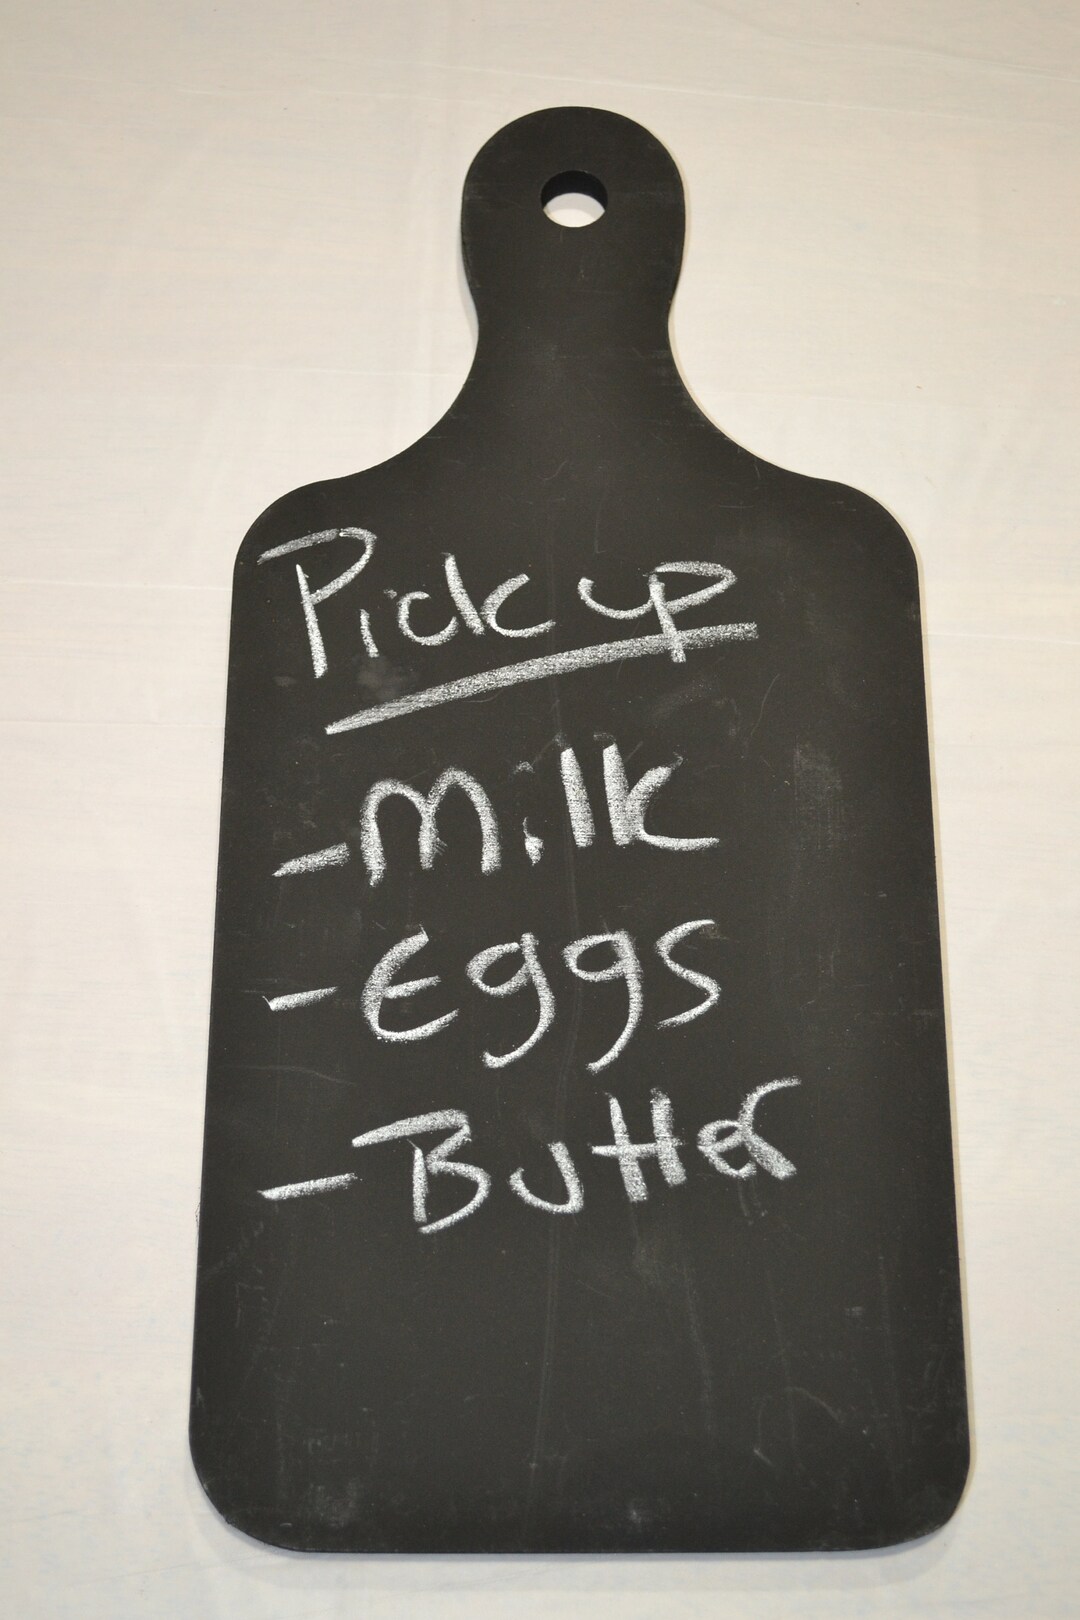 Pick up
- Milk
- Eggs
- Butter